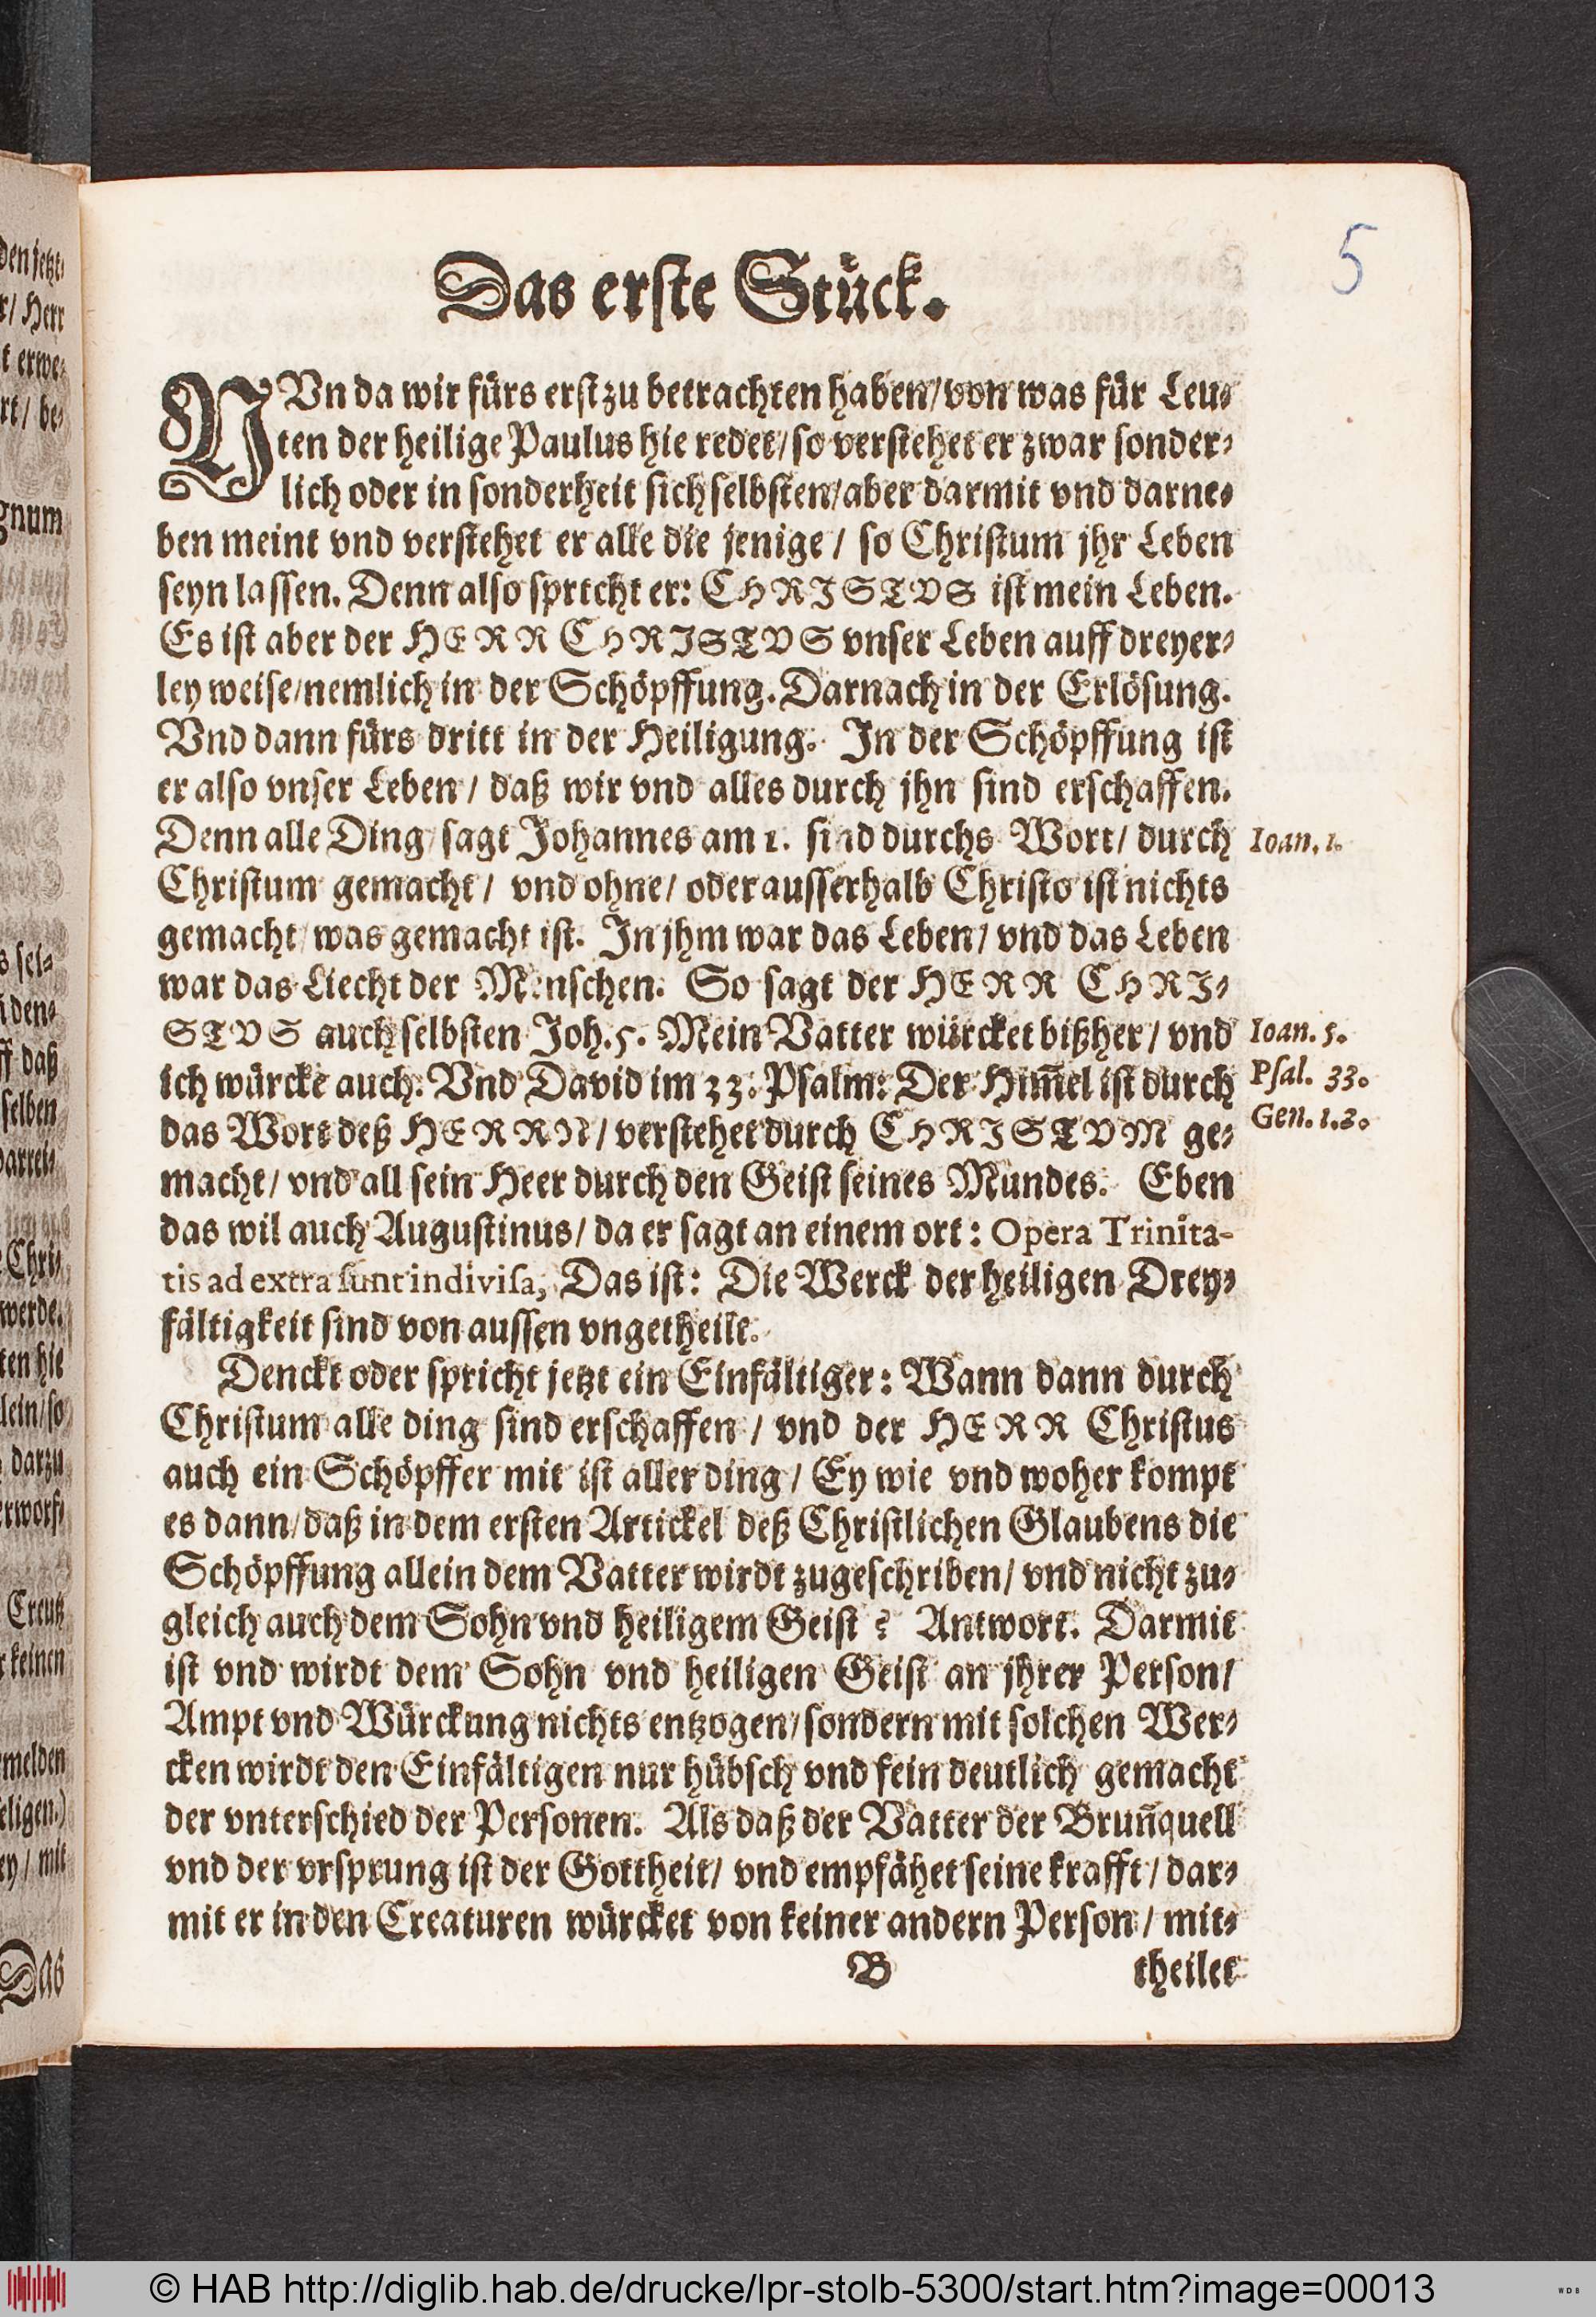 5
Das erste Stück.
NVn da wir fürs erst zu betrachten haben/ von was für Leu⸗
ten der heilige Paulus hie redet/ so verstehet er zwar sonder⸗
lich oder in sonderheit sich selbsten/ aber darmit vnd darne⸗
ben meint vnd verstehet er alle die jenige / so Christum jhr Leben
seyn lassen. Denn also sprtcht er: CHRISTVS ist mein Leben.
Es ist aber der HERR CHRISTVS vnser Leben auff dreyer⸗
ley weise/ nemlich in der Schöpffung. Darnach in der Erlösung.
Vnd dann fürs dritt in der Heiligung. In der Schöpffung ist
er also vnser Leben / daß wir vnd alles durch jhn sind erschaffen.
Denn alle Ding/ sagt Johannes am 1. sind durchs Wort/ durch
Ioan. 1.
Christum gemacht / vnd ohne/ oder ausserhalb Christo ist nichts
gemacht/ was gemacht ist. In jhm war das Leben/ vnd das Leben
war das Liecht der Menschen. So sagt der HERR CHRI⸗
STVS auch selbsten Joh. 5. Mein Vatter würcket bißher/ vnd
Ioan. 5.
ich würcke auch. Vnd David im 33. Psalm: Der Him̃el ist durch
Psal. 33.
das Wort deß HERRN/ verstehet durch CHRISTVM ge⸗
Gen. 1.2.
macht/ vnd all sein Heer durch den Geist seines Mundes. Eben
das wil auch Augustinus/ da er sagt an einem ort: Opera Trinita-
tis ad extra sunt indivisa, Das ist: Die Werck der heiligen Drey⸗
fältigkeit sind von aussen vngetheilt.
Denckt oder spricht jetzt ein Einfältiger: Wann dann durch
Christum alle ding sind erschaffen / vnd der HERR Christus
auch ein Schöpffer mit ist aller ding / Ey wie vnd woher kompt
es dann/ daß in dem ersten Artickel deß Christlichen Glaubens die
Schöpffung allein dem Vatter wirdt zugeschriben/ vnd nicht zu⸗
gleich auch dem Sohn vnd heiligem Geist? Antwort. Darmit
ist vnd wirdt dem Sohn vnd heiligen Geist an jhrer Person/
Ampt vnd Würckung nichts entzogen/ sondern mit solchen Wer⸗
cken wirdt den Einfältigen nur hübsch vnd fein deutlich gemacht
der vnterschied der Personen. Als daß der Vatter der Brun̄quell
vnd der vrsprung ist der Gottheit/ vnd empfähet seine krafft / dar⸗
mit er in den Creaturen würcket von keiner andern Person / mit⸗
B theilet
© HAB http://diglib.hab.de/drucke/lpr-stolb-5300/start.htm?image=00013